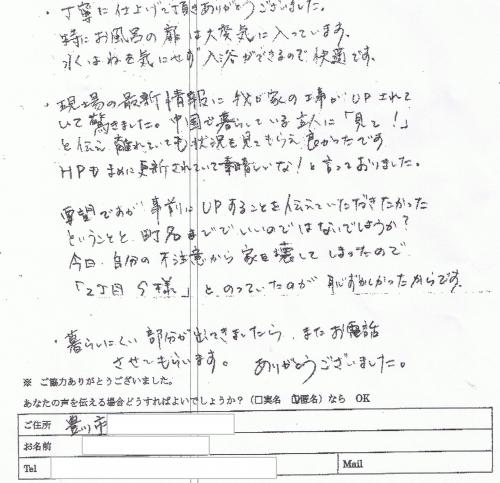 ・丁寧に仕上げて頂きありがとうございました。
特にお風呂の扉は大変気に入っています。
水はねを気にせず入浴ができるので快適です。
・現場の最新情報に我が家の工事がUPされて
いて驚きました。中国で暮らしている主人に「見て！」
と伝え離れていても状況を見てもらえ良かったです
HPもまめに更新されていて素晴しいな！と言っておりました。
要望ですが事前にUPすることを伝えていただきたかった
ということと、町名まででいいのではないでしょうか？
今回、自分の不注意から家を壊してしまったので
「2丁目 S様」とのっていたのが恥ずかしかったからです
・暮らしにくい部分が出てきましたら、またお電話
させてもらいます。 ありがとうございました。
※ ご協力ありがとうございました。
あなたの声を伝える場合どうすればよいでしょうか？（□実名 ☑匿名）なら OK
ご住所 豊川市
お名前
Tel Mail